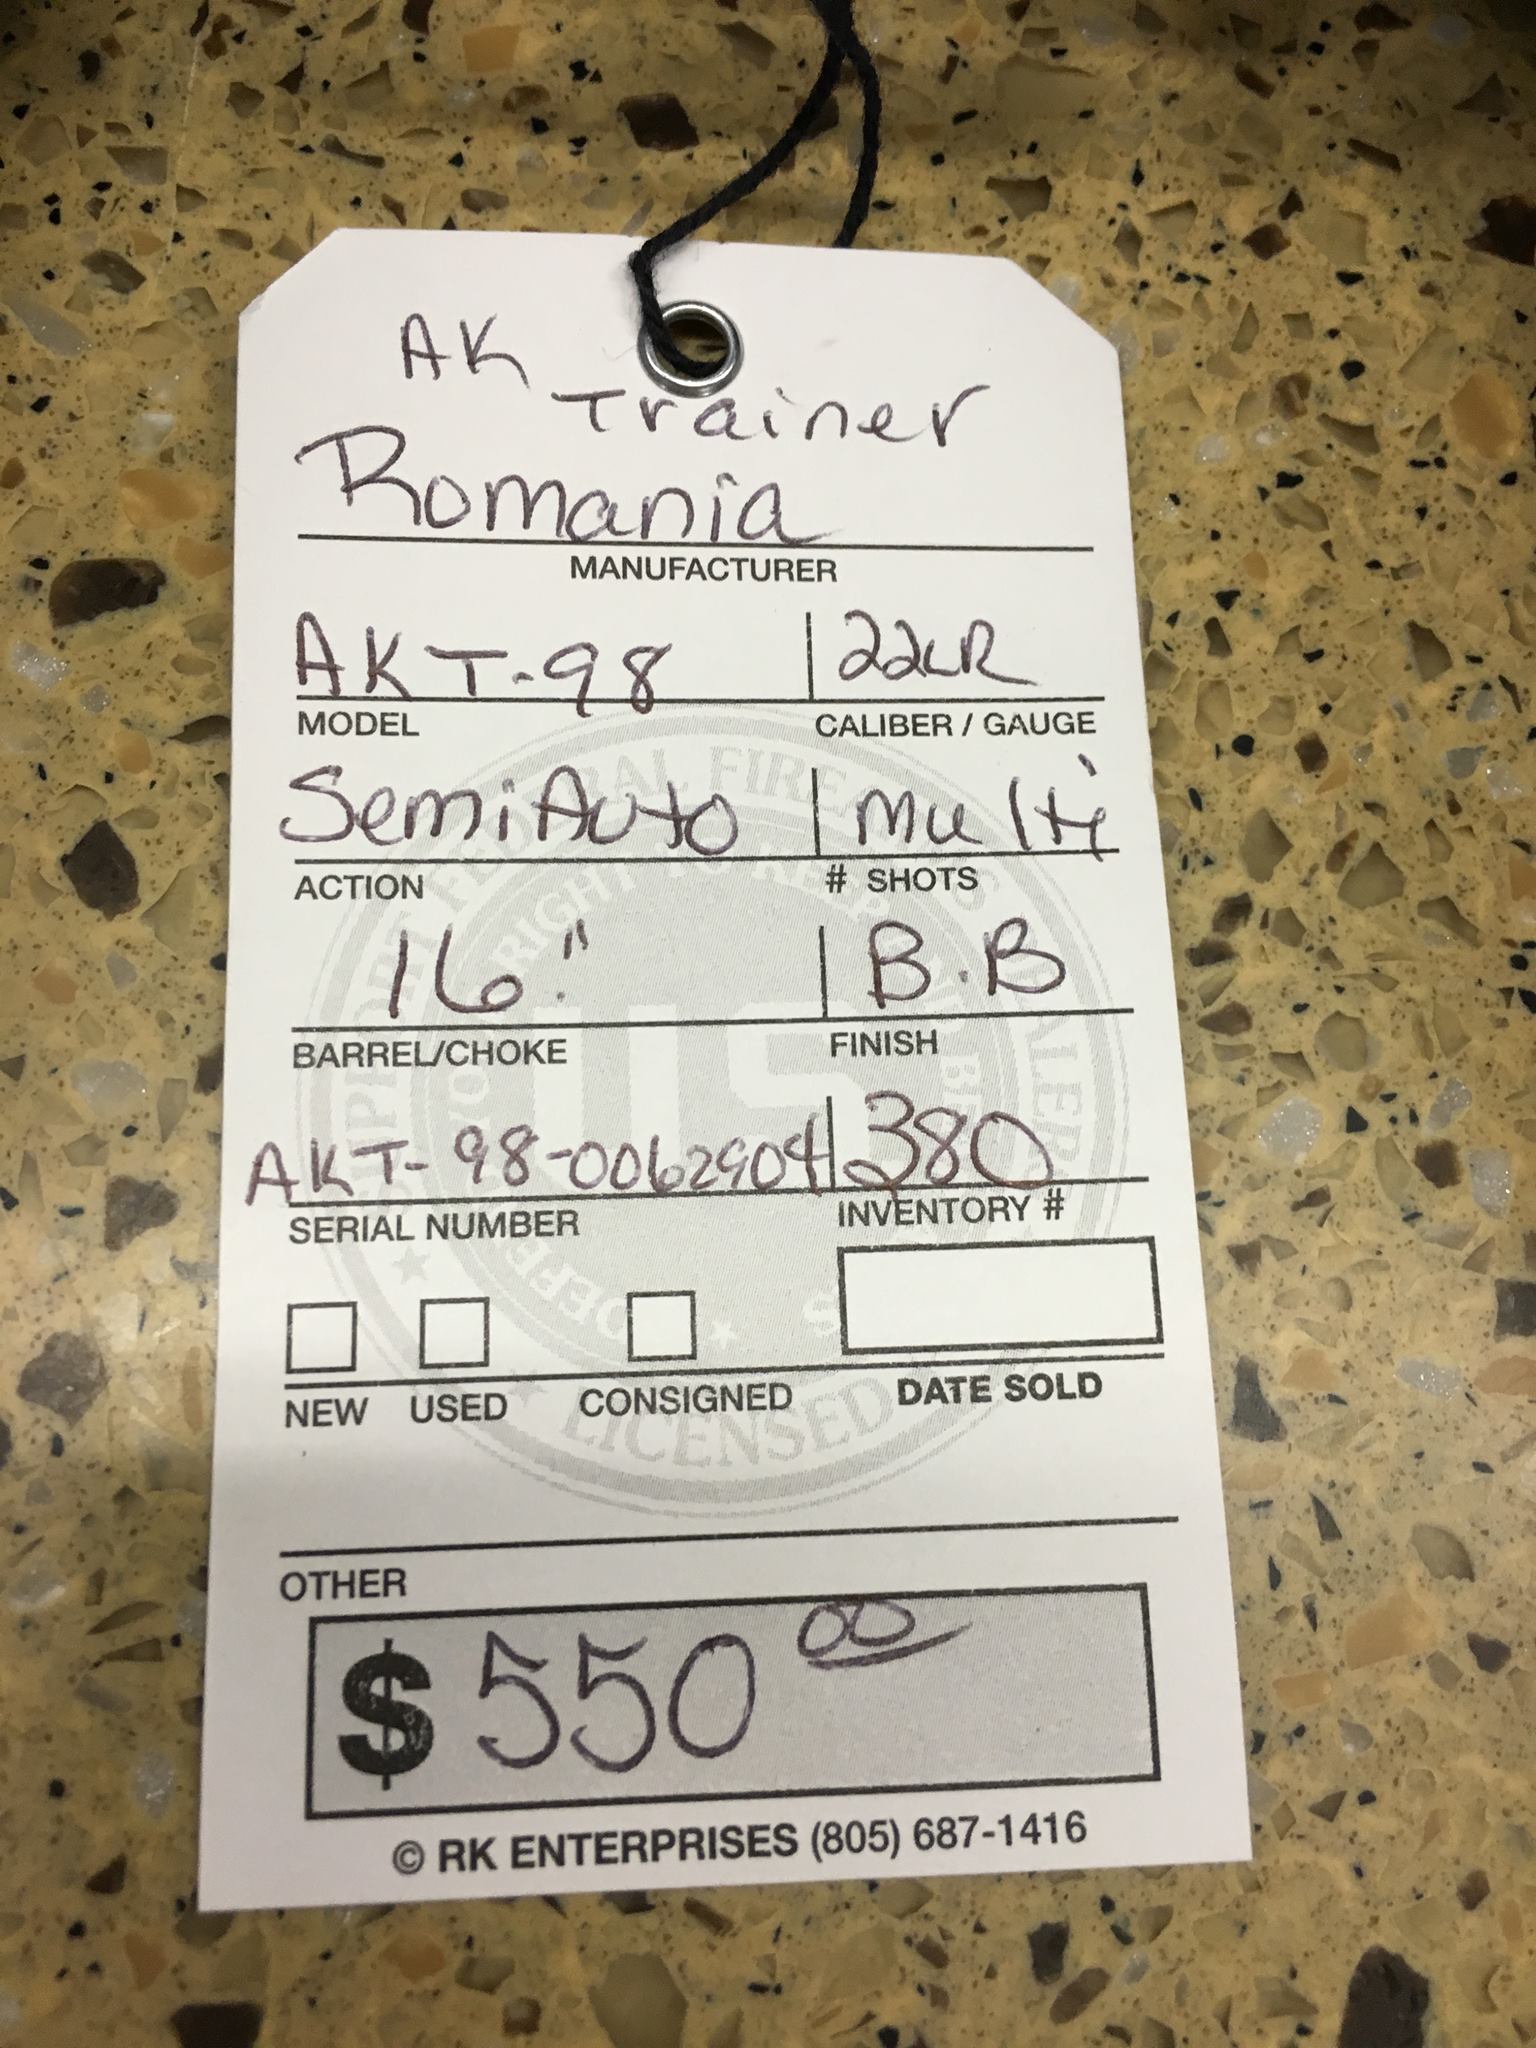 AK
Trainer
Romania
MANUFACTURER
AKT-98 22LR
MODEL CALIBER / GAUGE
SemiAuto Multi
ACTION # SHOTS
16." B.B
BARREL/CHOKE FINISH
AKT-98-0062904 380
SERIAL NUMBER INVENTORY #
NEW USED CONSIGNED DATE SOLD
LICENSED
OTHER
$ 550 00
© RK ENTERPRISES (805) 687-1416